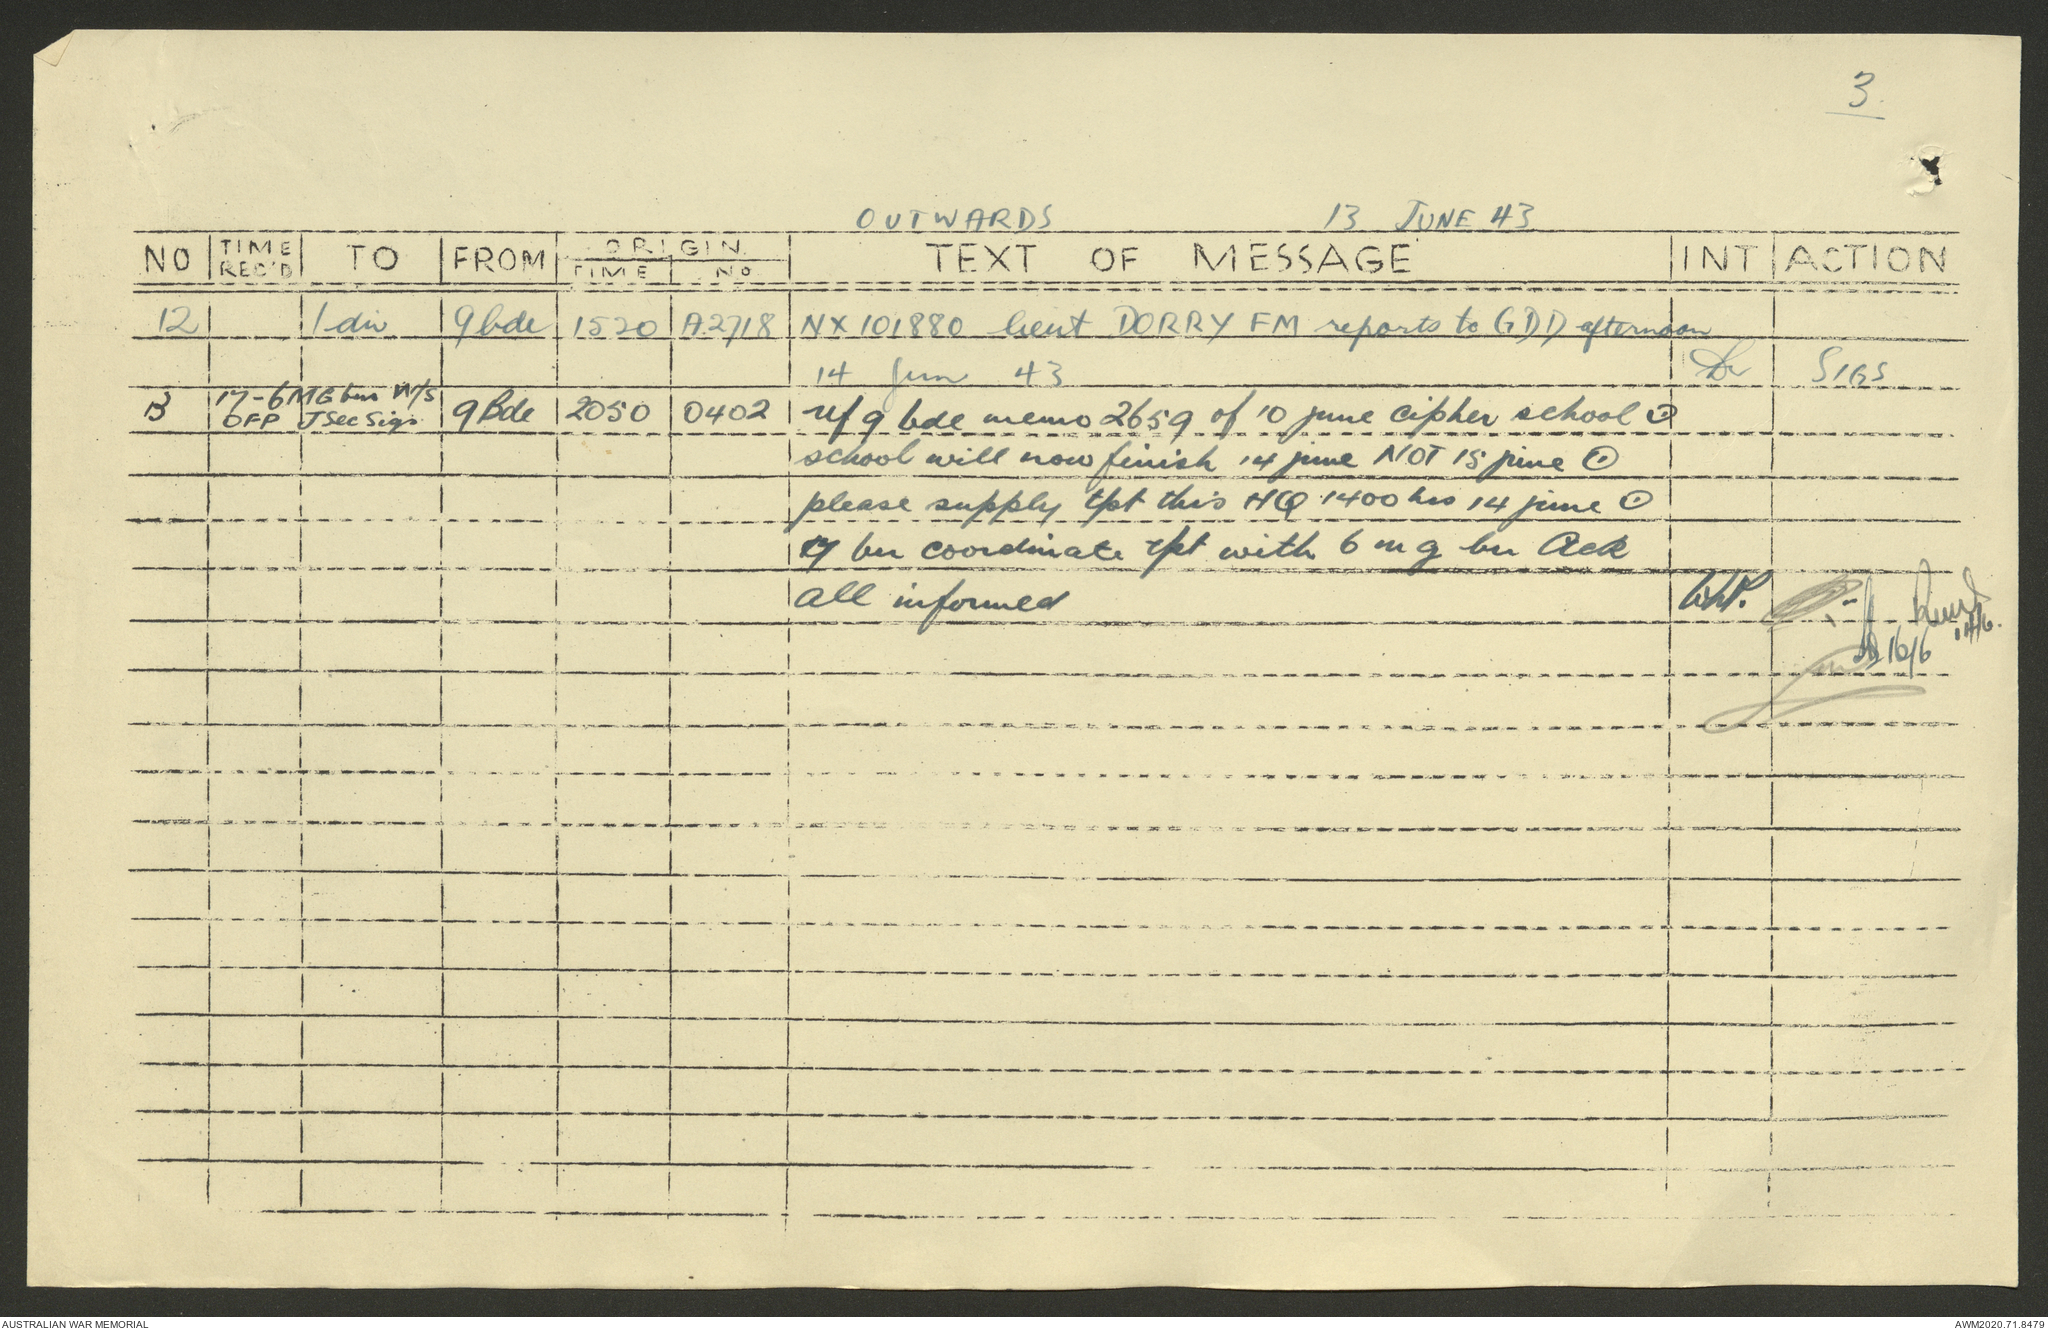 3.
OUTWARDS 13 JUNE 43
NO TIME REC'D TO FROM ORIGIN TIME NO TEXT OF MESSAGE INT ACTION
12 1 div 9 bde 1520 A.2718 NX101880 Lieut DORRY FM reports to GDD afternoon
14 Jun 43 SIGS
13 17-6 MG bns W/S
OFP J Sec Sigs 9 Bde 2050 0402 ref 9 bde memo 2659 of 10 june cipher school ⊙
school will now finish 14 june NOT 15 june ⊙
please supply tpt this HQ 1400 hrs 14 june ⊙
17 bn coordinate tpt with 6 mg bn Ack
all informed WHP.
14/6.
16/6
AUSTRALIAN WAR MEMORIAL AWM2020.71.8479